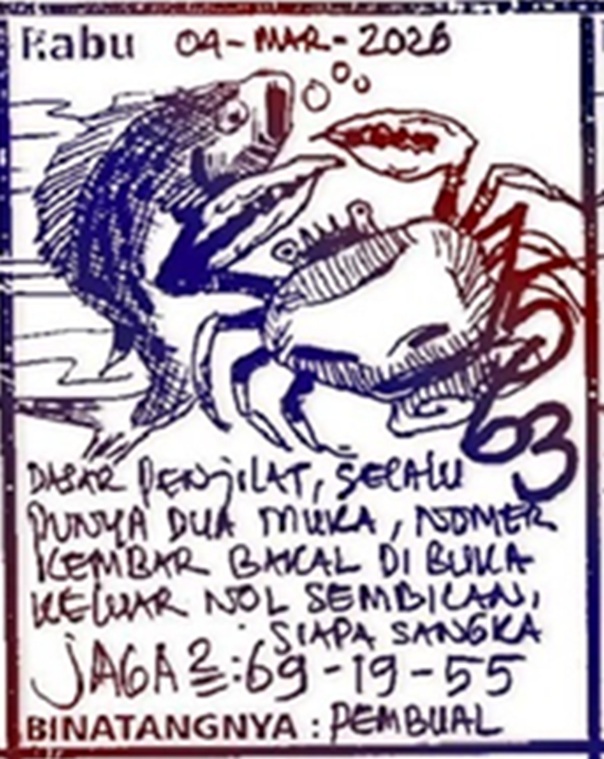 Rabu 04-MAR-2026
63
DASAR PENJILAT, SELALU
PUNYA DUA MUKA, NOMER
KEMBAR BAKAL DI BUKA
KELUAR NOL SEMBILAN,
SIAPA SANGKA
JAGA2:69-19-55
BINATANGNYA : PEMBUAL